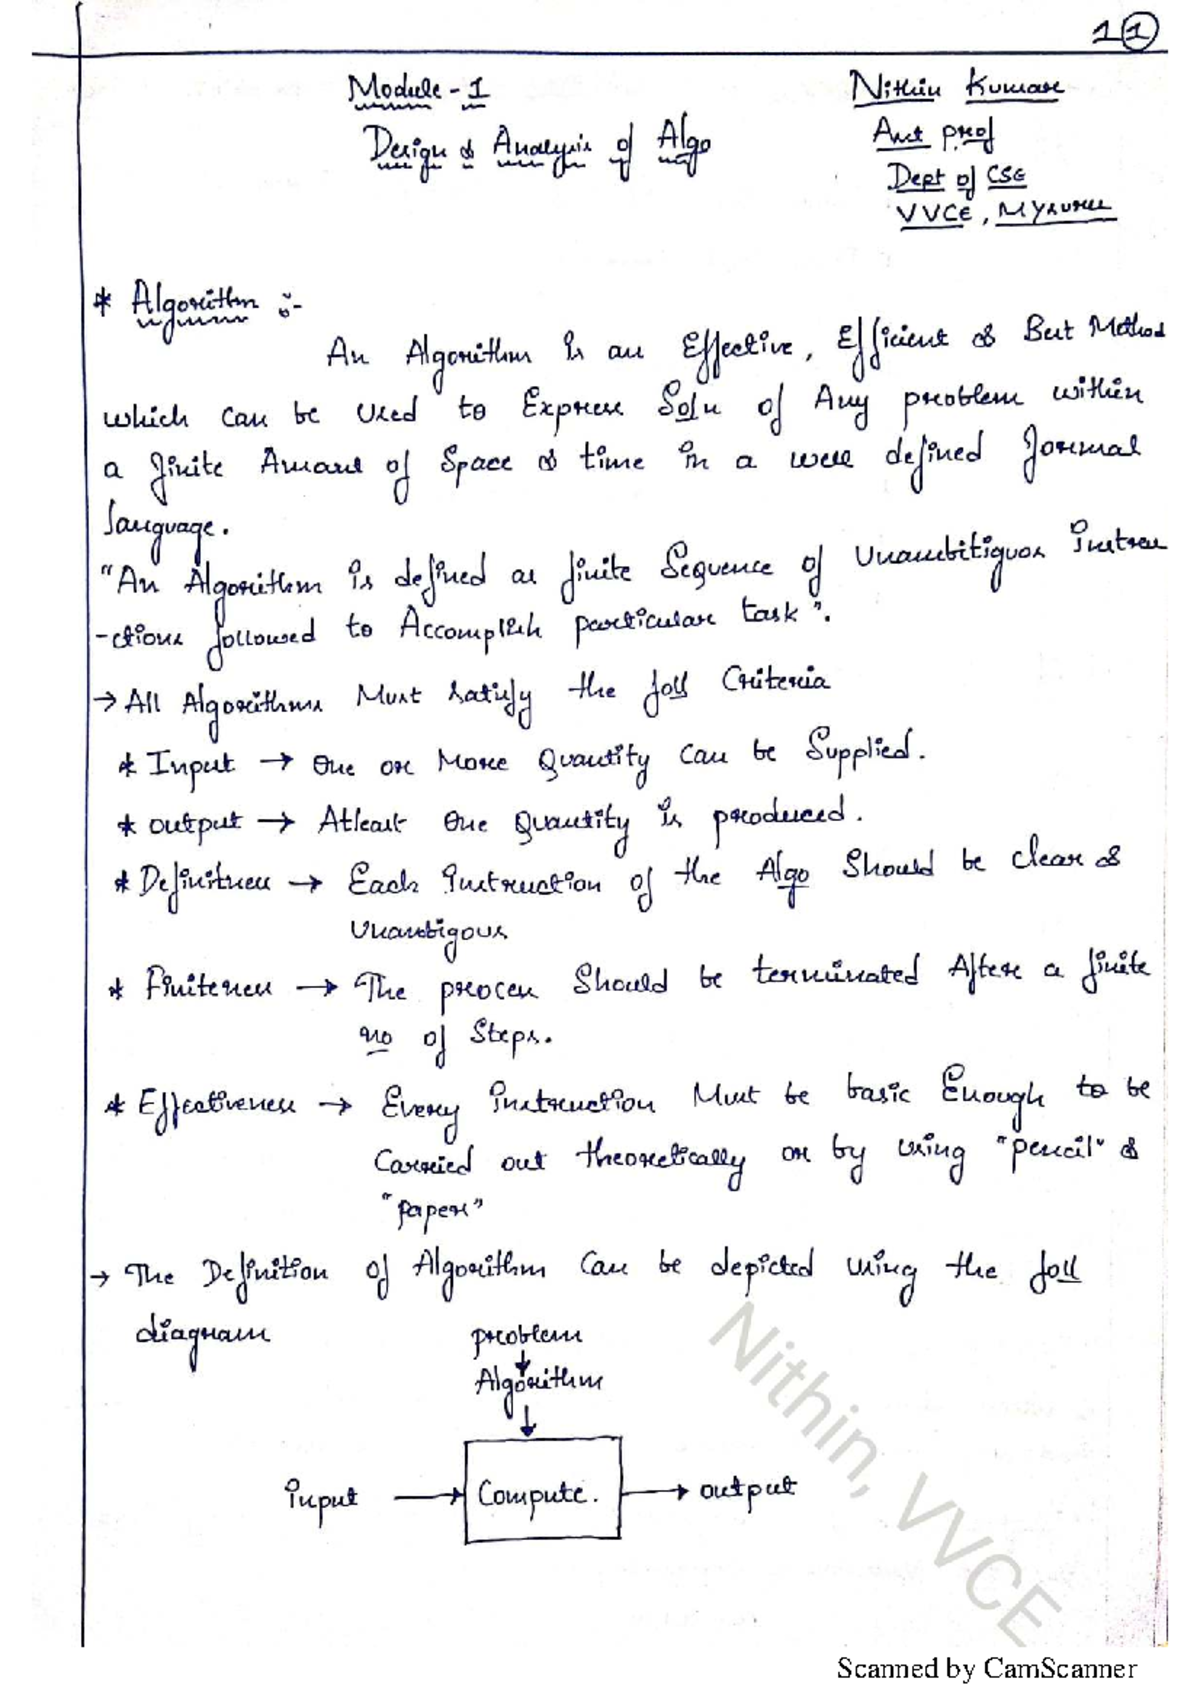 1 1
Module - 1
Nithin Kumar
Design & Analysis of Algo
Asst prof
Dept of CSE
VVCE, Mysuru
* Algorithm :-
An Algorithm is an Effective, Efficient & Best Method
which can be used to Express Soln of Any problem within
a finite Amount of Space & time in a well defined formal
language.
"An Algorithm is defined as finite Sequence of Unambitiguos instru
-ctions followed to Accomplish particular task".
→ All Algorithms Must satisfy the foll Criteria
* Input → One or More Quantity Can be Supplied.
* output → Atleast One Quantity is produced.
* Definitness → Each Instruction of the Algo Should be clear &
Unambigous
* Finiteness → The process Should be terminated After a finite
no of Steps.
* Effectiveness → Every instruction Must be basic Enough to be
Carried out theoretically or by using "pencil" &
"paper"
→ The Definition of Algorithm Can be depicted using the foll
diagram
problem
Algorithm
input → Compute. → output
Nithin, VVCE
Scanned by CamScanner